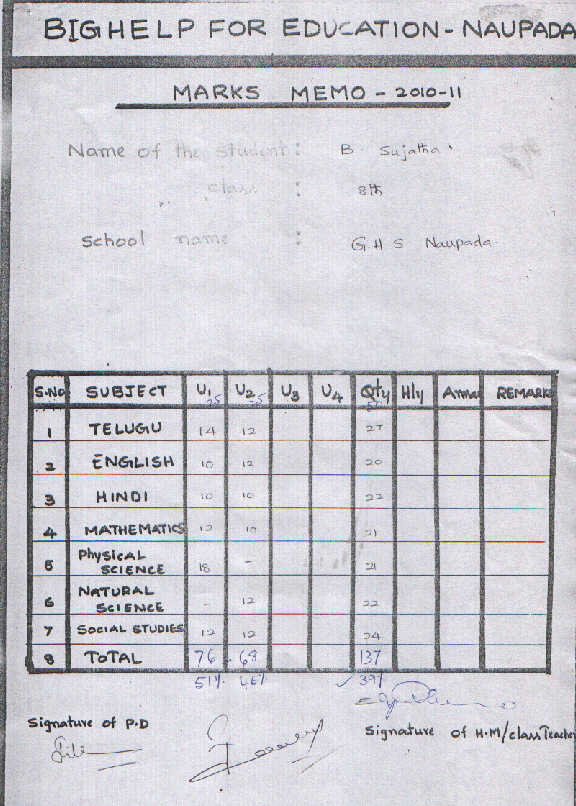 BIGHELP FOR EDUCATION - NAUPADA
MARKS MEMO - 2010-11
Name of the student : B Sujatha
class : 8th
School name : G H S Naupada
S.No SUBJECT U1 U2 U3 U4 Qtly Hly Annual REMARK
25 25 50
1 TELUGU 14 12 27
2 ENGLISH 10 12 20
3 HINDI 10 10 22
4 MATHEMATICS 12 10 21
5 Physical SCIENCE 18 - 21
6 NATURAL SCIENCE - 12 22
7 Social STUDIES 12 12 24
8 TOTAL 76 68 137
51% 39%
Signature of P.D
Signature of H.M/class Teacher